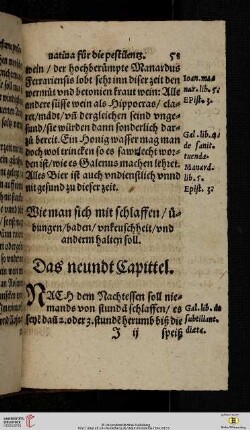 nativa für die pestilentz. 58
wein / der hochberümpte Manardus
Ferrariensis lobt sehr inn diser zeit den
wermůt vnd betonien kraut wein: Alle
andere süsse wein als Hippocras / cla-
ret / mådt / vnd dergleichen seind vnge-
sund / sie würden dann sonderlich dar-
zů bereit. Ein Honig wasser mag man
doch wol trincken so es
den ist / wie es Galenus machen lehret.
Alles Bier ist auch vndienstlich vnnd
nit gesund zu dieser zeit.
Ioan. ma
nar. lib. 5.
EPist. 3.
Gal. lib. 4.
de sanit.
tuenda.
Manard.
lib. 5.
Epist. 3.
Wie man sich mit schlaffen / ů-
bungen / baden / vnkeuschheit / vnd
anderm halten soll.
Das neundt Capittel.
NACH dem Nachtessen soll nie-
mands von stundā schlaffen / es
seye dañ 2. oder 3. stunde herumb biß die
J ij speiß
Gal. lib. de
subtiliant.
diæta.